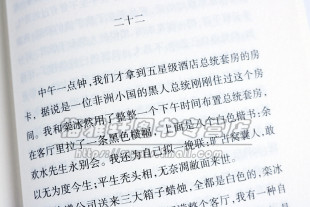 二十二
中午一点钟，我们才拿到五星级酒店总统套房的房
卡，据说是一位非洲小国的黑人总统刚刚住过这个房
间。我和栾冰然用了整整一个下午时间布置总统套房，
在客厅里拉了一条黑色横幅，上面
八个白色楷书：余
欢水先生永别会。我还为自己拟一挽联：旷世窝囊人，敢
以无为度今生；平生秃头相，无奈调敝面来世。
公司送来三大箱子蜡烛，全都是白色的，栾冰
整个客厅，我有一种自